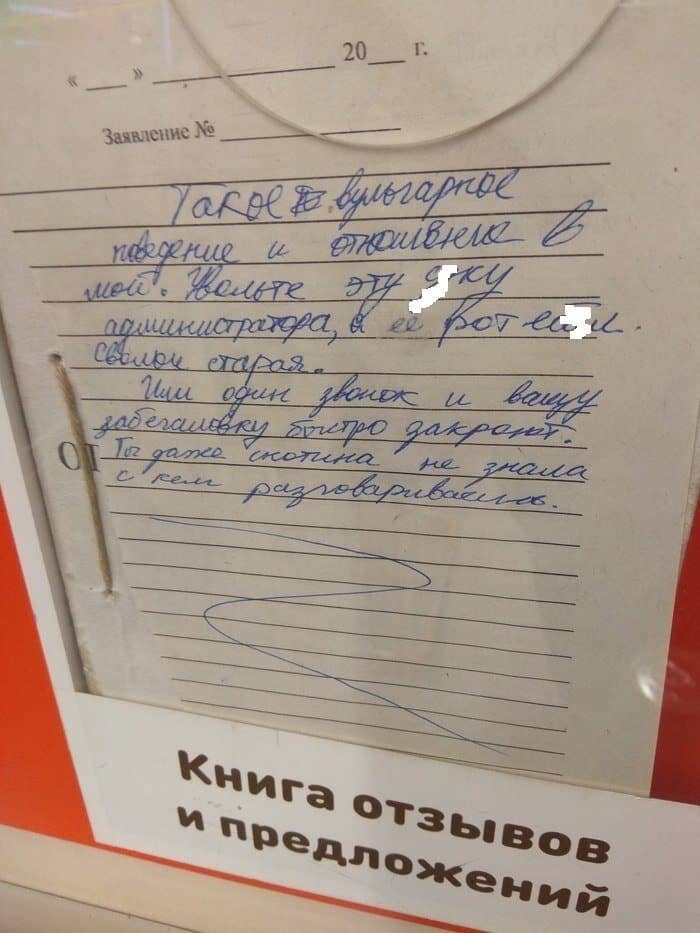 « __ » ______________ 20__ г.
Заявление № ______________
Такое вульгарное
поведение и отношение в
мой. Увольте эту
администратора, я ее рот
Сволоч старая.
Или один звонок и вашу
забегаловку быстро закроют.
ОТ
Ты даже скотина не знала
с кем разговариваешь.
Книга отзывов
и предложений